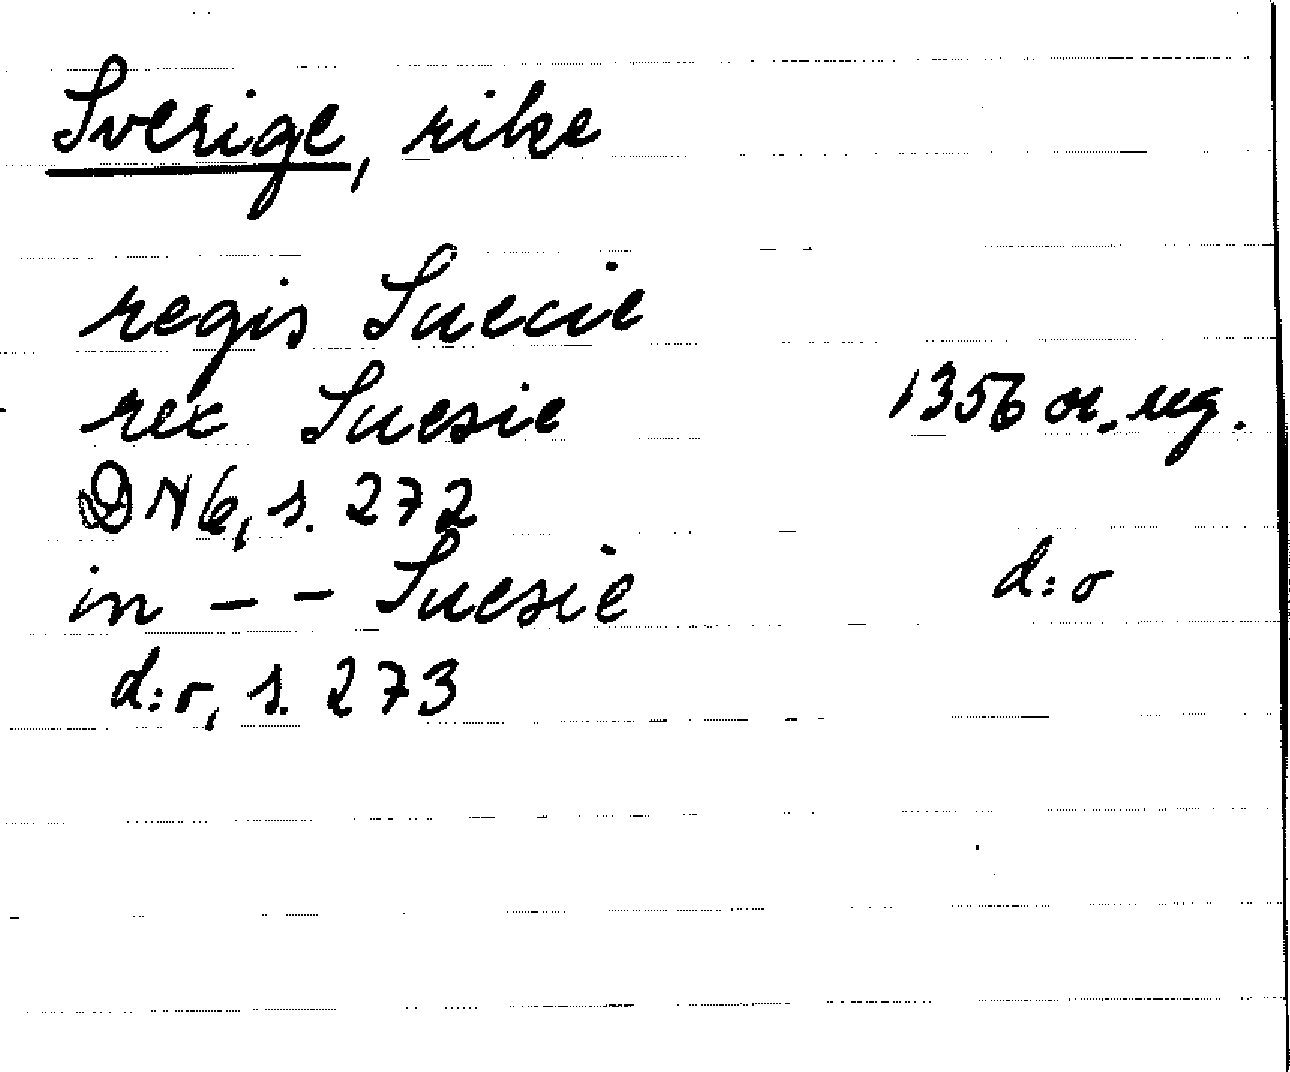 Sverige, rike
regis Suecie
rex Suesie 1356 or. reg.
DN6, s. 272
in - - Suesie d:o
d:o, s. 273